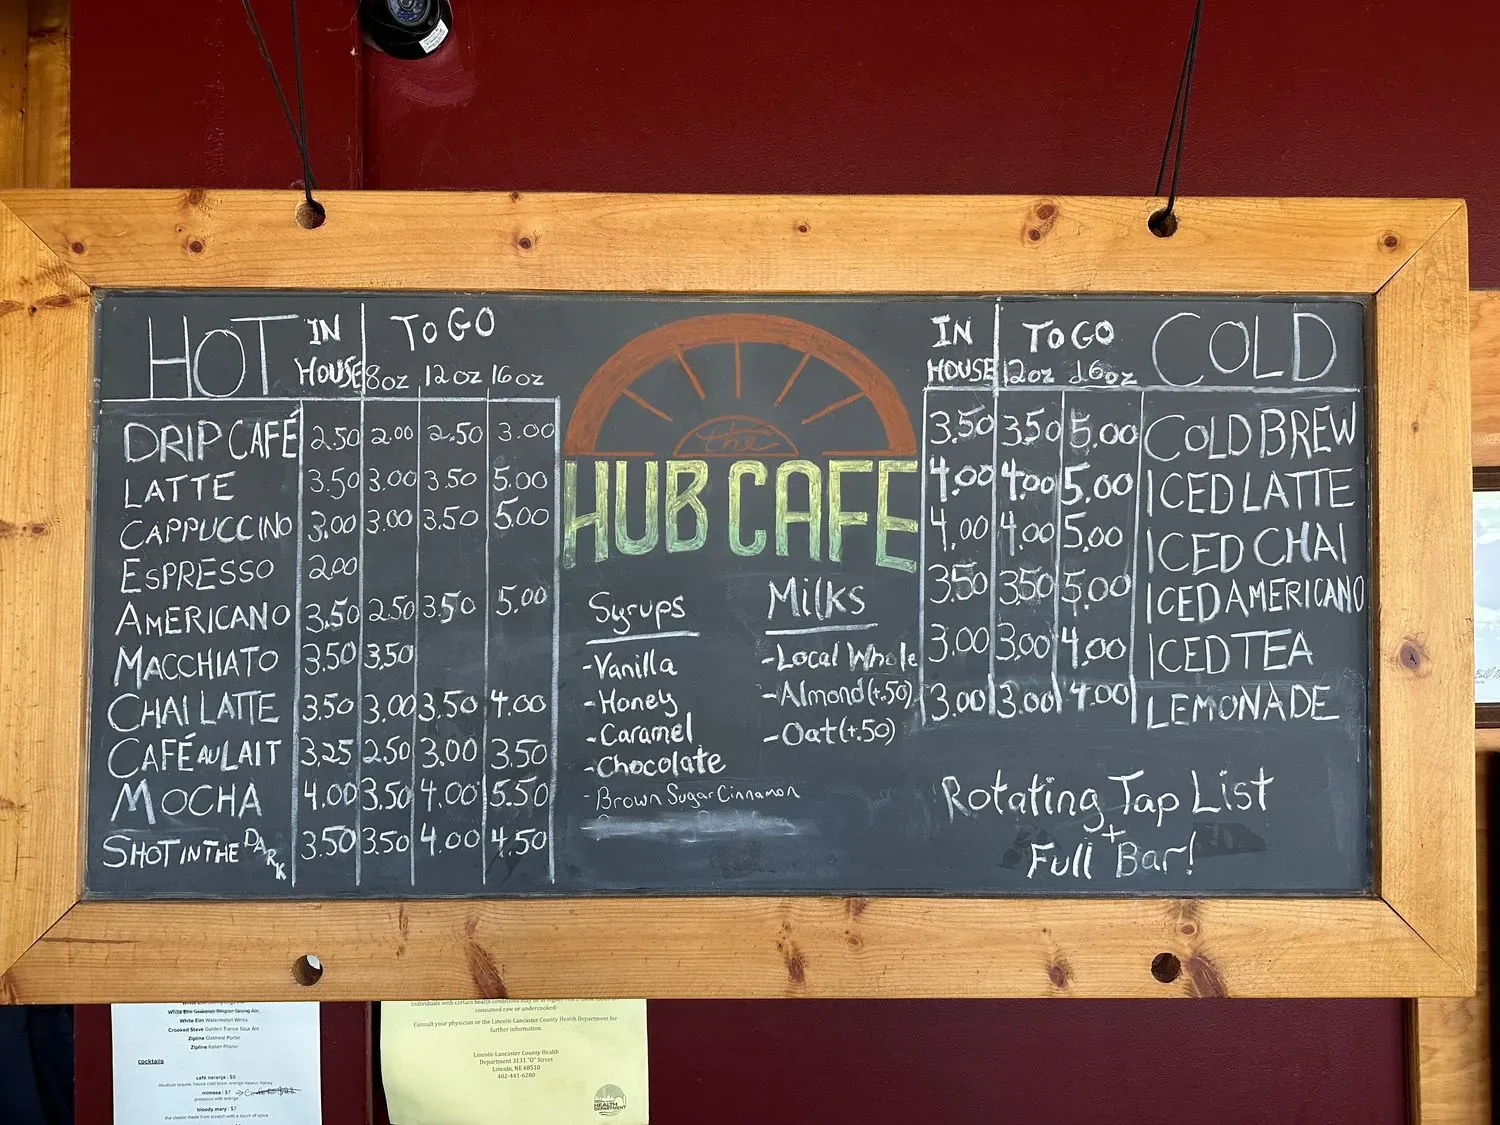 HOT IN HOUSE TO GO
8oz 12oz 16oz
DRIP CAFÉ 2.50 2.00 2.50 3.00
LATTE 3.50 3.00 3.50 5.00
CAPPUCCINO 3.00 3.00 3.50 5.00
ESPRESSO 2.00
AMERICANO 3.50 2.50 3.50 5.00
MACCHIATO 3.50 3.50
CHAI LATTE 3.50 3.00 3.50 4.00
CAFÉ AU LAIT 3.25 2.50 3.00 3.50
MOCHA 4.00 3.50 4.00 5.50
SHOT IN THE DARK 3.50 3.50 4.00 4.50
the
HUB CAFE
Syrups
-Vanilla
-Honey
-Caramel
-Chocolate
-Brown Sugar Cinnamon
Milks
-Local Whole
-Almond (+.50)
-Oat (+.50)
IN HOUSE TO GO COLD
12oz 16oz
3.50 3.50 5.00 COLD BREW
4.00 4.00 5.00 ICED LATTE
4.00 4.00 5.00 ICED CHAI
3.50 3.50 5.00 ICED AMERICANO
3.00 3.00 4.00 ICED TEA
3.00 3.00 4.00 LEMONADE
Rotating Tap List
+
Full Bar!
White Elm Watermelon Weiss
Crooked Stave Golden Trance Sour Ale
Zipline Oatmeal Porter
Zipline Italian Pilsner
cocktails
café naranja | $8
mimosa | $7
prosecco with orange
bloody mary | $7
the classic made from scratch with a touch of spice
consumed raw or undercooked.
Consult your physician or the Lincoln-Lancaster County Health Department for
further information.
Lincoln-Lancaster County Health
Department 3131 "O" Street
Lincoln, NE 68510
402-441-6280
HEALTH
DEPARTMENT